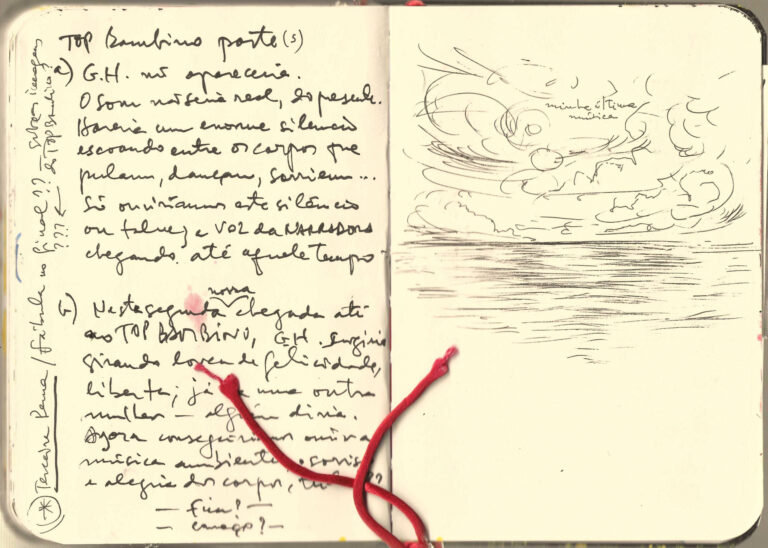 TOP Bambino parte(s)
a) G.H. não apareceria.
O som não seria real, do presente.
Haveria um enorme silêncio
escoando entre os corpos que
pulam, dançam, sorriem...
Só ouviríamos este silêncio
ou talvez a VOZ da NARRADORA
chegando até aquele tempo
nova
Nesta segunda chegada até
ao TOP BAMBINO, G.H. surgiria
girando louca de felicidade,
liberta; já é uma outra
mulher — alguém diria.
Agora conseguiríamos ouvir a
música ambiente, o sorriso
e alegria dos corpos,
— fim? —
— começo? —
(*) Terceira Perna / Fábula no final?? —
do TOP Bambino?
???
minha última
música